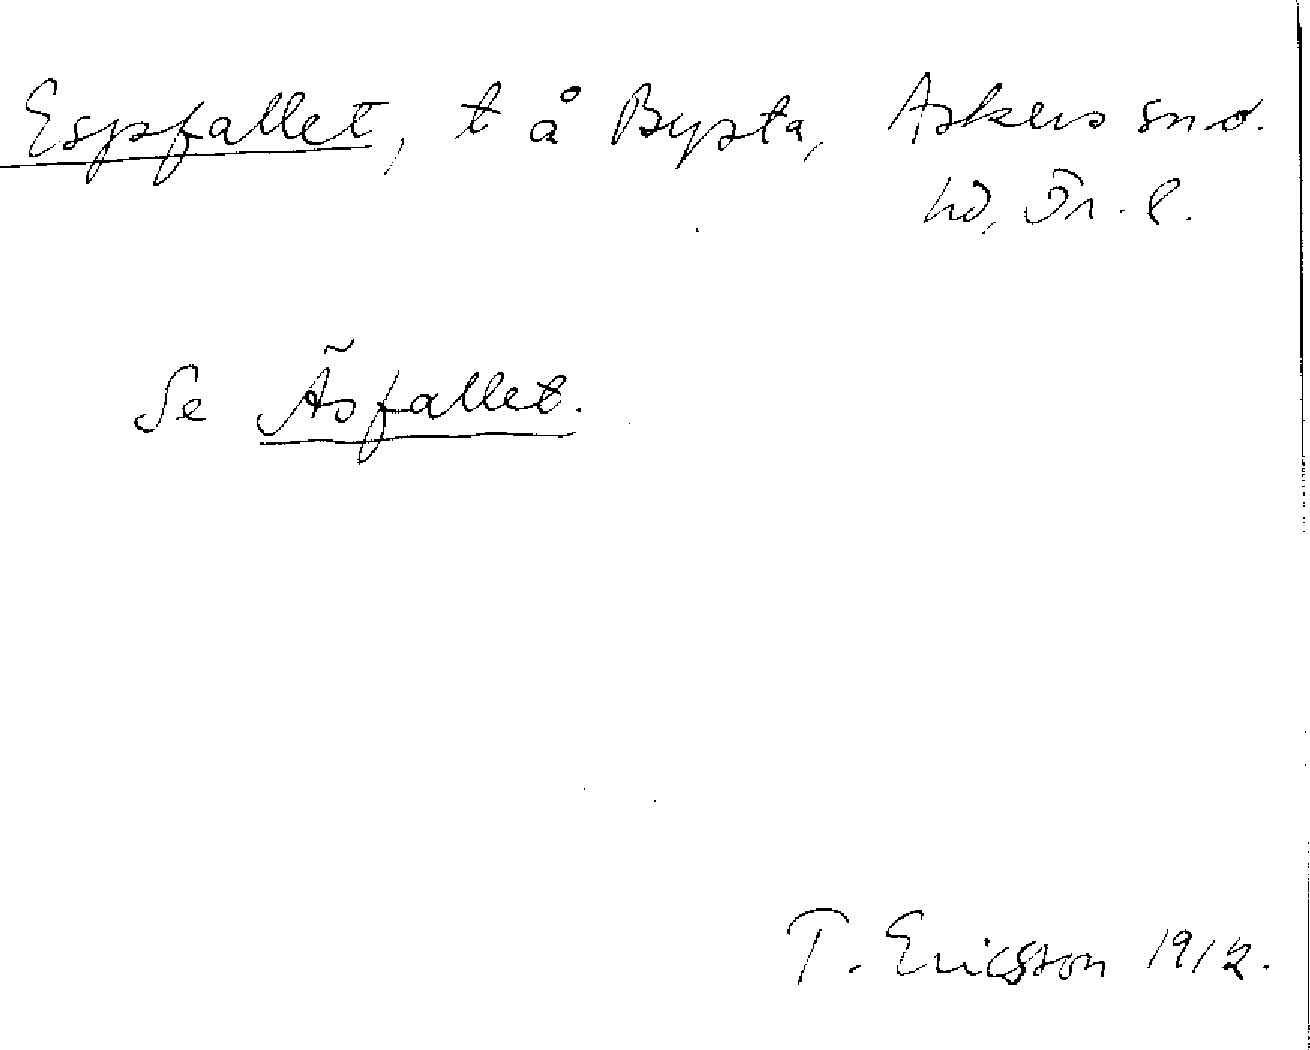 Espfallet, t å Bysta, Askers snd.
hd, Ör. l.
Se Äsfallet.
T. Ericsson 1912.